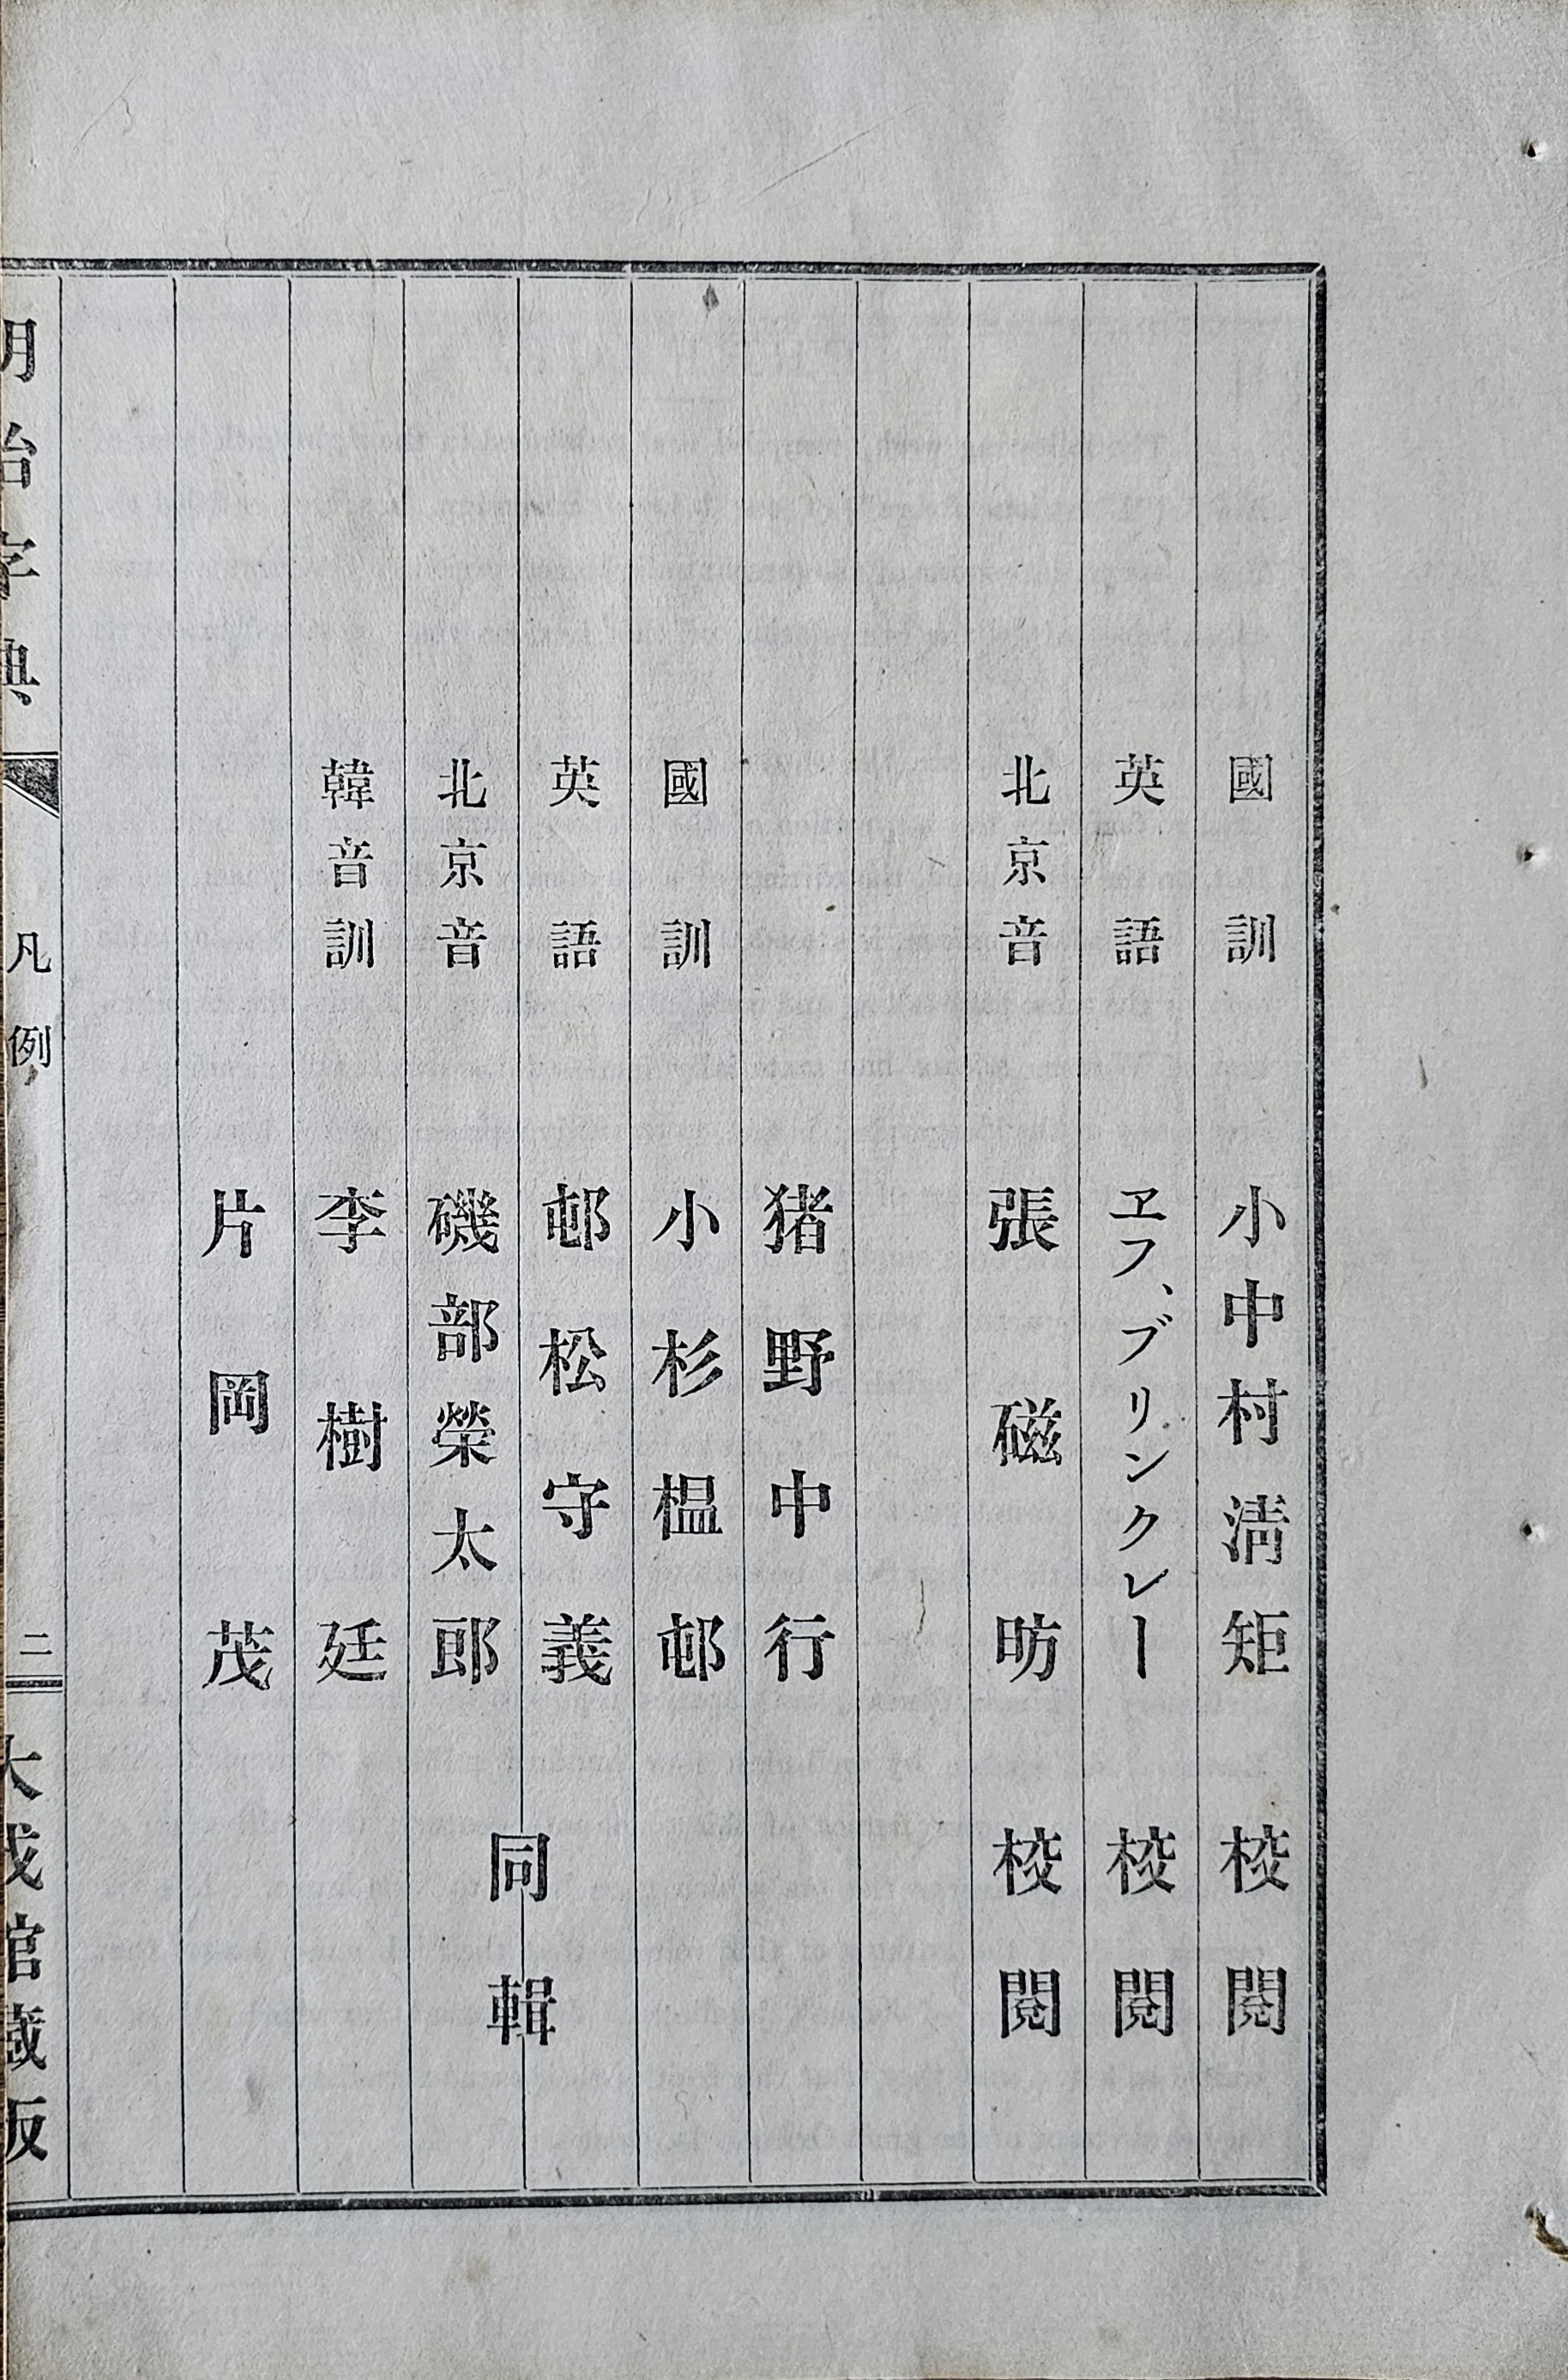 國訓 小中村淸矩 校閱
英語 ヱフ、ブリンクレー 校閱
北京音 張磁昉 校閱
猪野中行
國訓 小杉榲邨
英語 邨松守義
北京音 磯部榮太郎
韓音訓 李樹廷
片岡茂
同輯
明治字典 凡例 二 大成館藏版